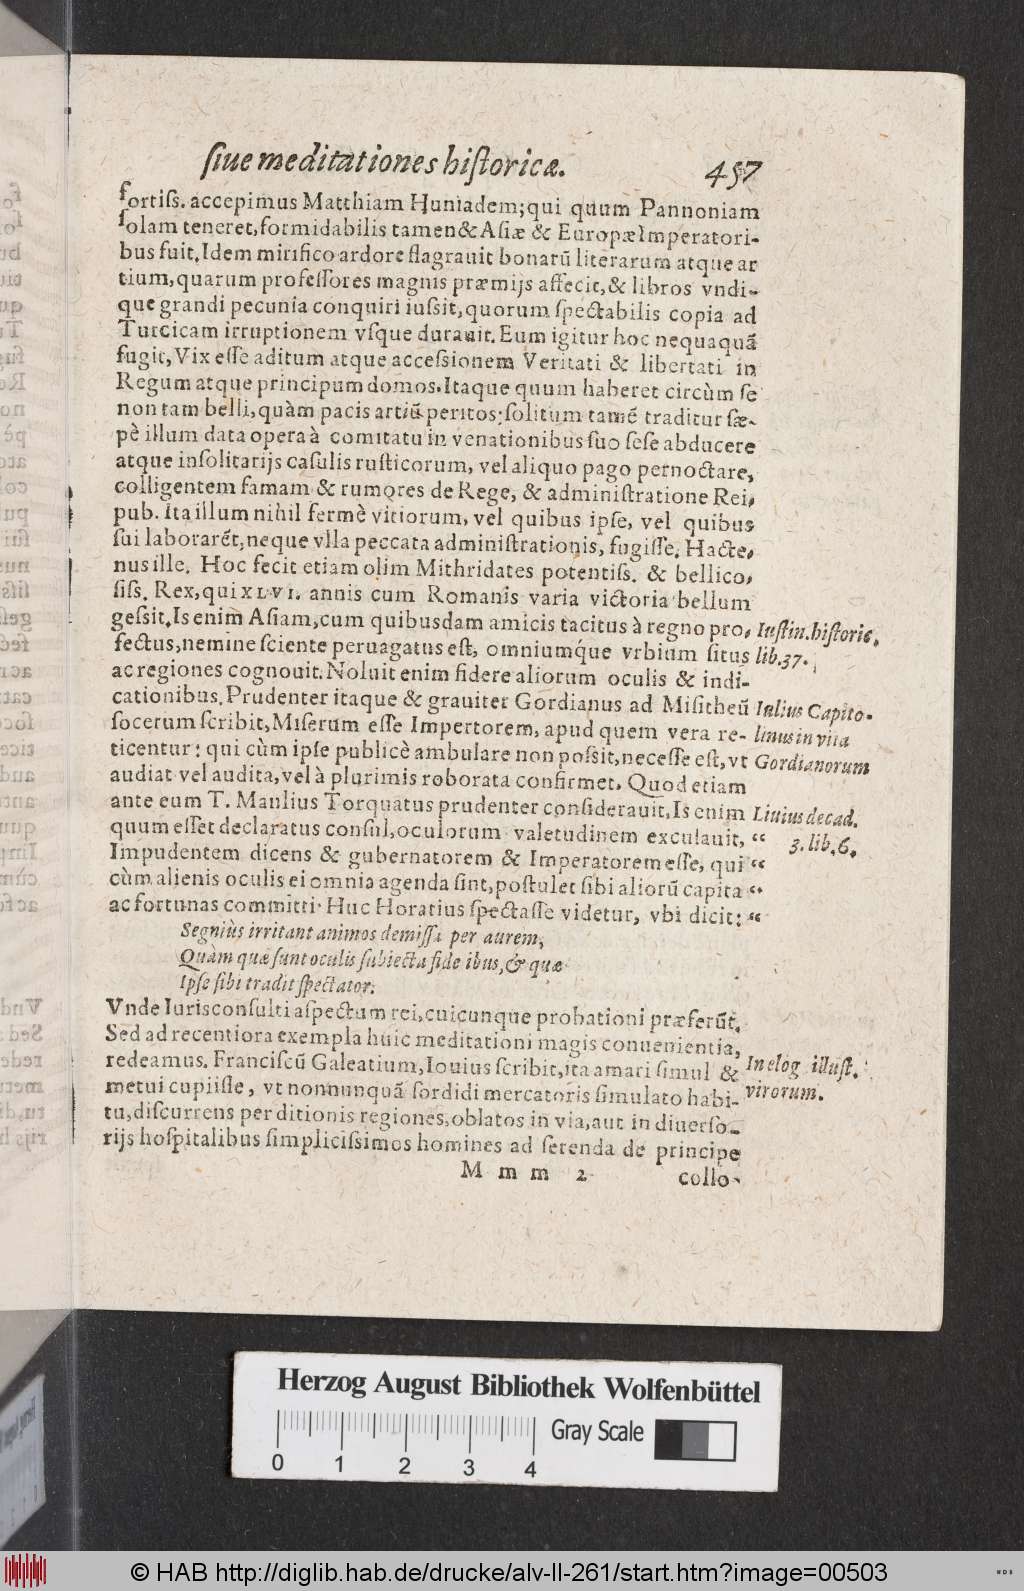 ſiue meditationes hiſtoricæ. 457
fortiſs. accepimus Matthiam Huniadem; qui quum Pannoniam
ſolam teneret, formidabilis tamen & Aſiæ & Europæ Imperatori-
bus fuit. Idem mirifico ardore flagrauit bonarũ literarum atque ar
tium, quarum profeſſores magnis præmijs affecit, & libros vndi-
que grandi pecunia conquiri iuſsit, quorum ſpectabilis copia ad
Turcicam irruptionem vſque durauit. Eum igitur hoc nequaquã
fugit, Vix eſſe aditum atque acceſsionem Veritati & libertati in
Regum atque principum domos. Itaque quum haberet circùm ſe
non tam belli, quàm pacis artiũ peritos; ſolitum tamẽ traditur ſæ-
pè illum data opera à comitatu in venationibus ſuo ſeſe abducere
atque in ſolitarijs caſulis ruſticorum, vel aliquo pago pernoctare,
colligentem famam & rumores de Rege, & adminiſtratione Rei,
pub. Ita illum nihil fermè vitiorum, vel quibus ipſe, vel quibus
ſui laborarẽt, neque vlla peccata adminiſtrationis, fugiſſe. Hacte,
nus ille. Hoc fecit etiam olim Mithridates potentiſs. & bellico,
ſiſs. Rex, qui XLVI. annis cum Romanis varia victoria bellum
geſsit. Is enim Aſiam, cum quibusdam amicis tacitus à regno pro, Iuſtin. hiſtoric.
fectus, nemine ſciente peruagatus eſt, omniumq́ue vrbium ſitus lib. 37.
ac regiones cognouit. Noluit enim fidere aliorum oculis & indi-
cationibus. Prudenter itaque & grauiter Gordianus ad Miſitheũ Iulius Capito-
ſocerum ſcribit, Miſerum eſſe Impertorem, apud quem vera re- linus in vita
ticentur: qui cùm ipſe publicè ambulare non poſsit, neceſſe eſt, vt Gordianorum
audiat vel audita, vel à plurimis roborata confirmet. Quod etiam
ante eum T. Manlius Torquatus prudenter conſiderauit. Is enim Liuius decad.
quum eſſet declaratus conſul, oculorum valetudinem excuſauit, “ 3. lib. 6.
Impudentem dicens & gubernatorem & Imperatorem eſſe, qui “
cùm alienis oculis ei omnia agenda ſint, poſtulet ſibi aliorũ capita “
ac fortunas committi. Huc Horatius ſpectaſſe videtur, vbi dicit: “
Segniùs irritant animos demiſſa per aurem,
Quàm quæ ſunt oculis ſubiecta fide ibus, & quæ
Ipſe ſibi tradit ſpectator.
Vnde Iurisconſulti aſpectum rei, cuicunque probationi præferũt.
Sed ad recentiora exempla huic meditationi magis conuenientia,
redeamus. Franciſcũ Galeatium, Iouius ſcribit, ita amari ſimul & In elog illuſt.
metui cupiiſſe, vt nonnunquã ſordidi mercatoris ſimulato habi- virorum.
tu, diſcurrens per ditionis regiones, oblatos in via, aut in diuerſo-
rijs hoſpitalibus ſimpliciſsimos homines ad ferenda de principe
M m m 2 collo-
Herzog August Bibliothek Wolfenbüttel
0 1 2 3 4 Gray Scale
© HAB http://diglib.hab.de/drucke/alv-ll-261/start.htm?image=00503